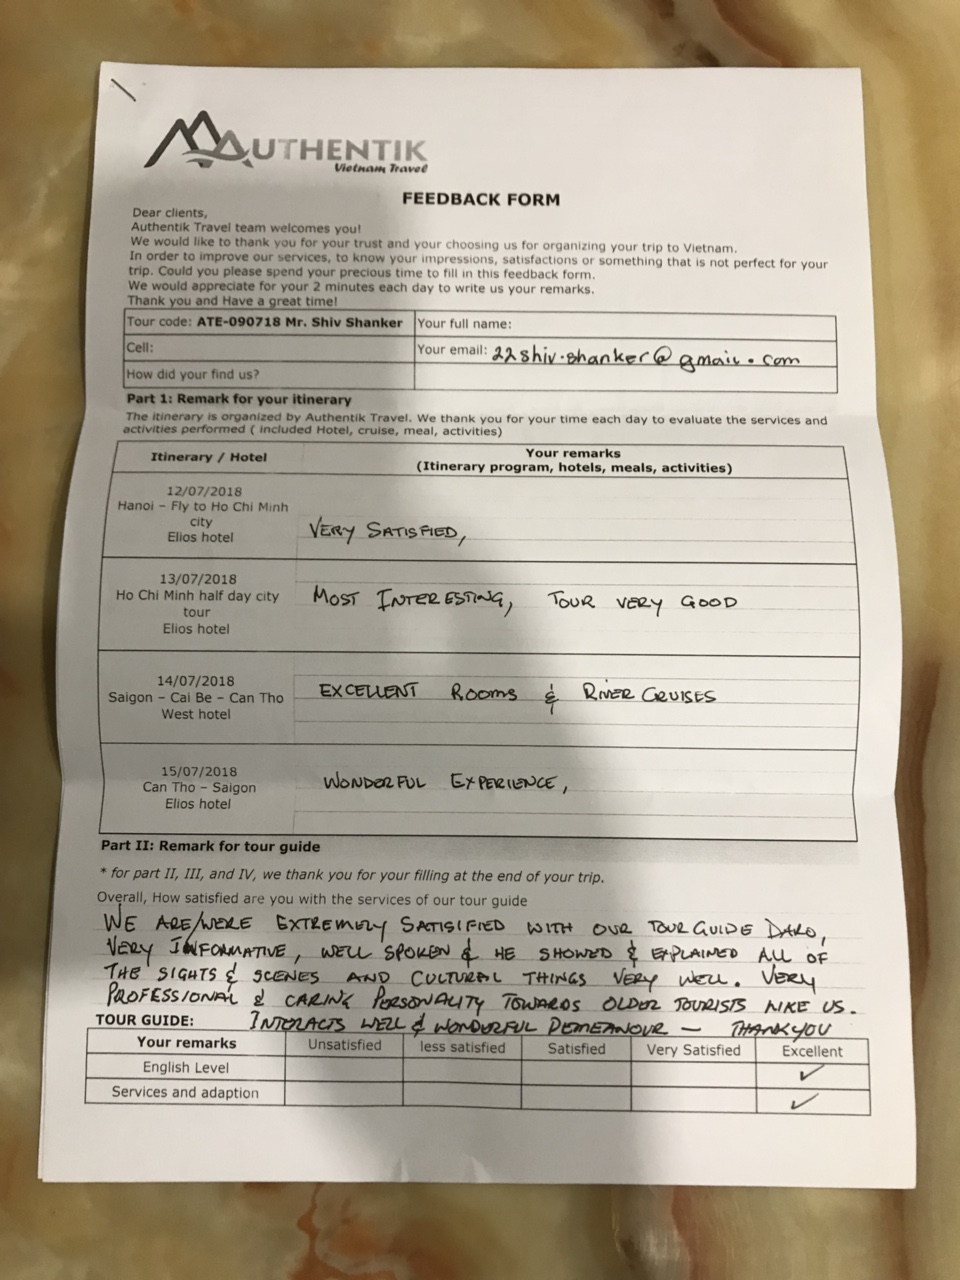 AUTHENTIK
Vietnam Travel
FEEDBACK FORM
Dear clients,
Authentik Travel team welcomes you!
We would like to thank you for your trust and your choosing us for organizing your trip to Vietnam.
In order to improve our services, to know your impressions, satisfactions or something that is not perfect for your
trip. Could you please spend your precious time to fill in this feedback form.
We would appreciate for your 2 minutes each day to write us your remarks.
Thank you and Have a great time!
Tour code: ATE-090718 Mr. Shiv Shanker Your full name:
Cell: Your email: 22shiv.shanker@gmail.com
How did your find us?
Part 1: Remark for your itinerary
The itinerary is organized by Authentik Travel. We thank you for your time each day to evaluate the services and
activities performed ( included Hotel, cruise, meal, activities)
Itinerary / Hotel Your remarks
(Itinerary program, hotels, meals, activities)
12/07/2018
Hanoi – Fly to Ho Chi Minh
city
Elios hotel
VERY SATISFIED,
13/07/2018
Ho Chi Minh half day city
tour
Elios hotel
MOST INTERESTING, TOUR VERY GOOD
14/07/2018
Saigon – Cai Be – Can Tho
West hotel
EXCELLENT ROOMS & RIVER CRUISES
15/07/2018
Can Tho – Saigon
Elios hotel
WONDERFUL EXPERIENCE,
Part II: Remark for tour guide
* for part II, III, and IV, we thank you for your filling at the end of your trip.
Overall, How satisfied are you with the services of our tour guide
WE ARE/WERE EXTREMELY SATISIFIED WITH OUR TOUR GUIDE DARO,
VERY INFORMATIVE, WELL SPOKEN & HE SHOWED & EXPLAINED ALL OF
THE SIGHTS & SCENES AND CULTURAL THINGS VERY WELL. VERY
PROFESSIONAL & CARING PERSONALITY TOWARDS OLDER TOURISTS LIKE US.
TOUR GUIDE: INTERACTS WELL & WONDERFUL DEMEANOUR – THANKYOU
Your remarks Unsatisfied less satisfied Satisfied Very Satisfied Excellent
English Level ✓
Services and adaption ✓